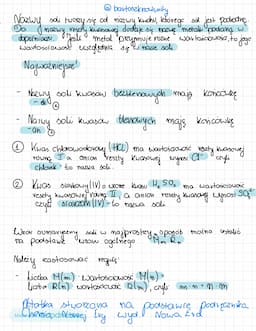 Nazwy soli tworzą się od nazwy kwasu, którego sól jest pochodną.
Do nazwy reszty kwasowej dodaje się nazwę metalu podaną w
dopełniaczu. Jeśli metal przyjmuje różne wartościowości, to jego
wartościowość uwzględnia się w nazwie soli.
Najważniejsze!
- Nazwy soli kwasów beztlenowych mają końcówkę
- ek
- Nazwy soli kwasów tlenowych mają końcówkę
- an
① Kwas chlorowodorowy (HCl) ma wartościowość reszty kwasowej
równą I a anion reszty kwasowej wynosi Cl⁻, czyli
chlorek to nazwa soli.
② Kwas siarkowy(IV) o wzorze kwasu H₂SO₃ ma wartościowość
reszty kwasowej równą II, a anion reszty kwasowej wynosi SO₃²⁻
czyli siarczan(IV) - to nazwa soli
Wzór sumaryczny soli w najprostszy sposób można ustalić
na podstawie wzoru ogólnego
Należy zastosować regułę:
czyli m · n = n · m
Notatka stworzona na podstawie podręcznika
wyd Nowa Era